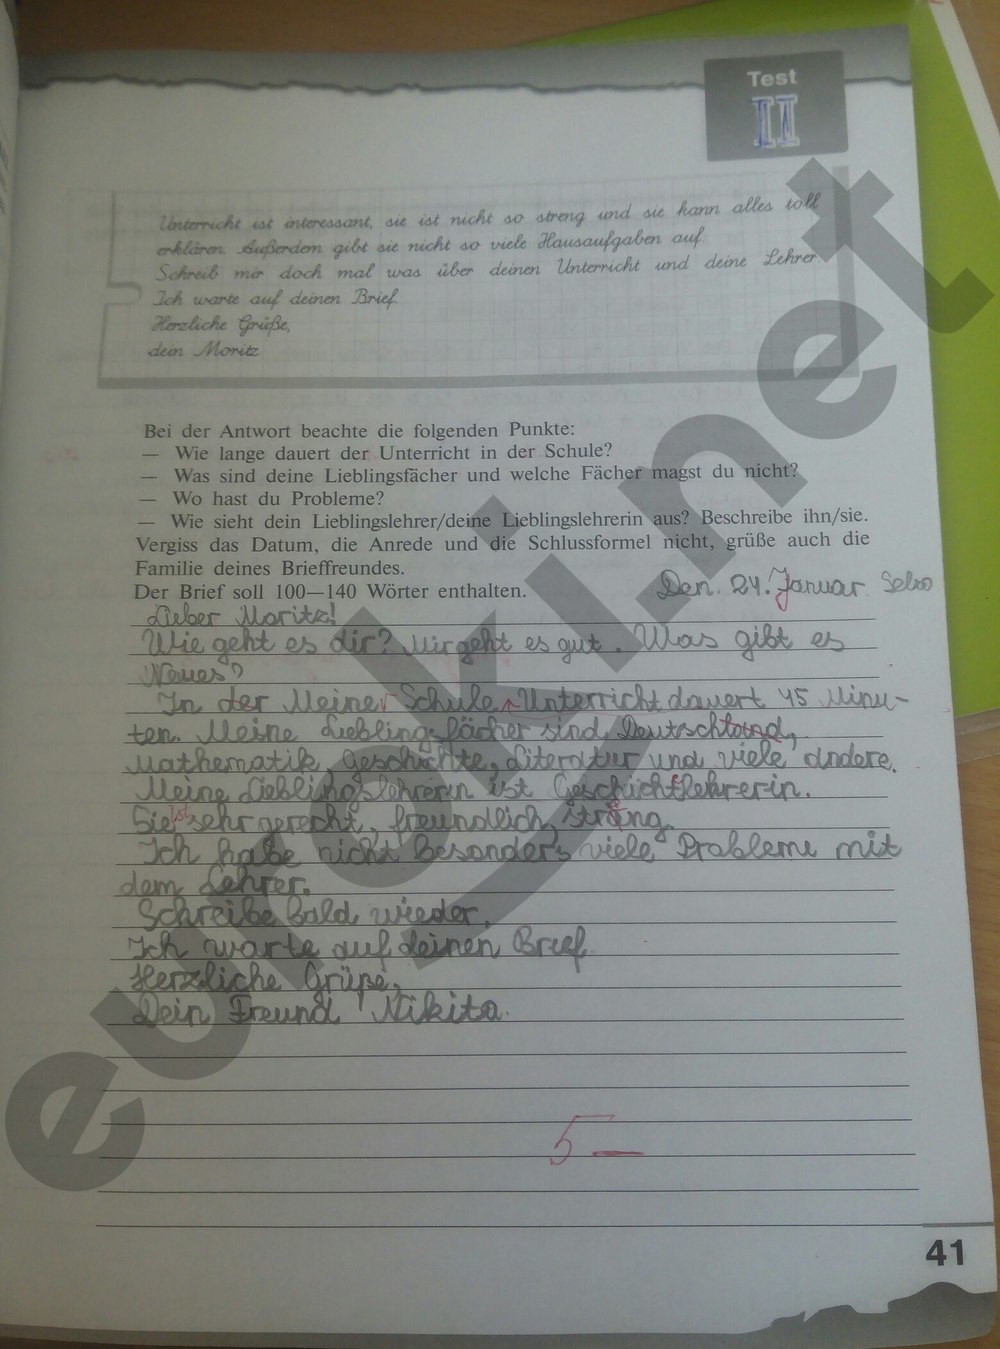 Test
II
Unterricht ist interessant, sie ist nicht so streng und sie kann alles toll
erklären. Außerdem gibt sie nicht so viele Hausaufgaben auf.
Schreib mir doch mal was über deinen Unterricht und deine Lehrer.
Ich warte auf deinen Brief.
Herzliche Grüße,
dein Moritz
Bei der Antwort beachte die folgenden Punkte:
— Wie lange dauert der Unterricht in der Schule?
— Was sind deine Lieblingsfächer und welche Fächer magst du nicht?
— Wo hast du Probleme?
— Wie sieht dein Lieblingslehrer/deine Lieblingslehrerin aus? Beschreibe ihn/sie.
Vergiss das Datum, die Anrede und die Schlussformel nicht, grüße auch die
Familie deines Brieffreundes.
Der Brief soll 100—140 Wörter enthalten.
Den. 24. Januar
Lieber Moritz!
Wie geht es dir? Mir geht es gut. Was gibt es
Neues?
In der Meiner Schule Unterricht dauert 45 Minu-
ten. Meine Lieblingsfächer sind Deutschland,
Mathematik, Geschichte, Literatur und viele andere.
Meine Lieblingslehrerin ist Geschichtlehrerin.
Sie ist sehr gerecht, freundlich, streng
Ich habe nicht besonders viele Probleme mit
dem Lehrer.
Schreibe bald wieder.
Ich warte auf deinen Brief
Herzliche Grüße,
Dein Freund Nikita.
5 —
41
euroki.net